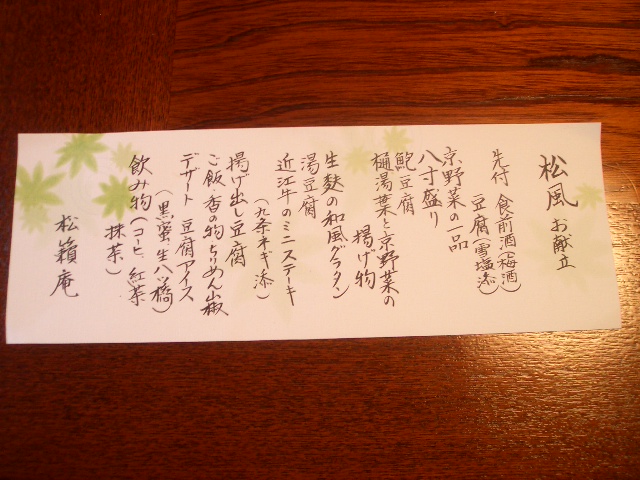 松風 お献立
先付 食前酒(梅酒)
豆腐(雪塩添)
京野菜の一品
八寸盛り
鮑豆腐
桶湯葉と京野菜の
揚げ物
生麩の和風グラタン
湯豆腐
近江牛のミニステーキ
(九条ネギ添)
揚げ出し豆腐
ご飯・香の物・ちりめん山椒
デザート 豆腐アイス
(黒蜜・生八ツ橋)
飲み物(コーヒ、紅茶
抹茶)
松籟庵